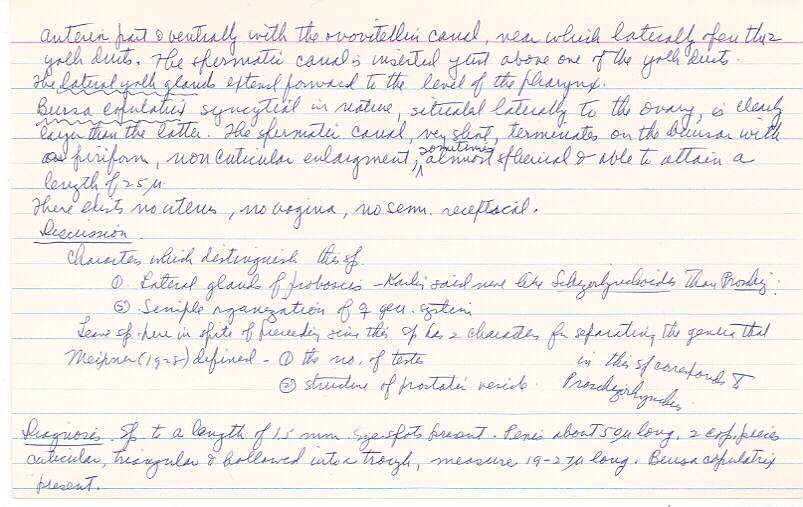 anterior part & ventrally with the ovovitellin canal, near which laterally open the 2
yolk ducts. The spermatic canal is inserted just above one of the yolk ducts.
The lateral yolk glands extend forward to the level of the pharynx.
Bursa copulatrix syncytial in nature, situated laterally to the ovary, is clearly
larger than the latter. The spermatic canal, very short, terminates on the bursa with
piriform, non cuticular enlargment, sometimes almost spherical & able to attain a
length of 25 µ.
There exists no uterus, no vagina, no sem. receptacal.
Discussion
Characters which distinguish this sp.
① Lateral glands of proboscis - Karling said more like Schizorhynchoides than Proschiz.
② Simple organization of ♀ gen. system
Leave sp. here in spite of preceeding since this sp has 2 characters for separating the genera that
Meixner (1928) defined - ① the no. of testes
② structure of prostatic vesicle.
in this sp corresponds to
Proschizorhynchus.
Diagnosis. Sp to a length of 1.5 mm. Eyespots present. Penis about 50µ long, 2 cop. pieces
cuticular, triangular & hollowed into a trough, measure 19-27µ long. Bursa copulatrix
present.